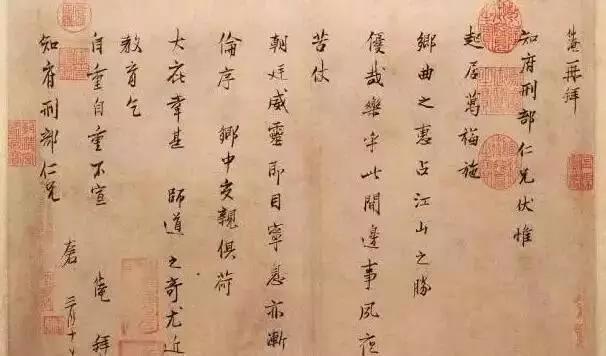 淹再拜
知府刑部仁兄伏惟
起居萬福施
鄉曲之惠占江山之勝
優哉樂乎此間邊事夙夜
苦仗
朝廷威靈即目寧息亦漸
倫序 鄉中交親俱荷
大庇幸甚 師道之奇尤近
教育乞
自重自重不宣 淹 拜
知府刑部仁兄 三月十